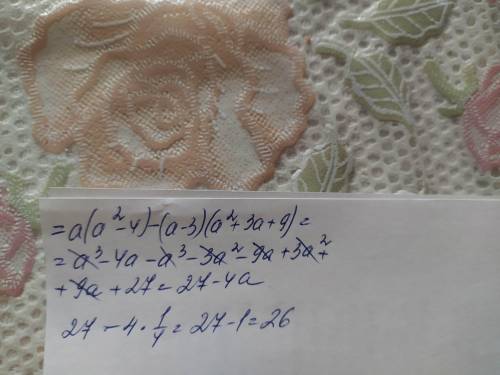 = a(a² - 4) - (a - 3)(a² + 3a + 9) =
= a³ - 4a - a³ - 3a² - 9a + 3a² +
+ 9a + 27 = 27 - 4a
27 - 4 · 1/4 = 27 - 1 = 26